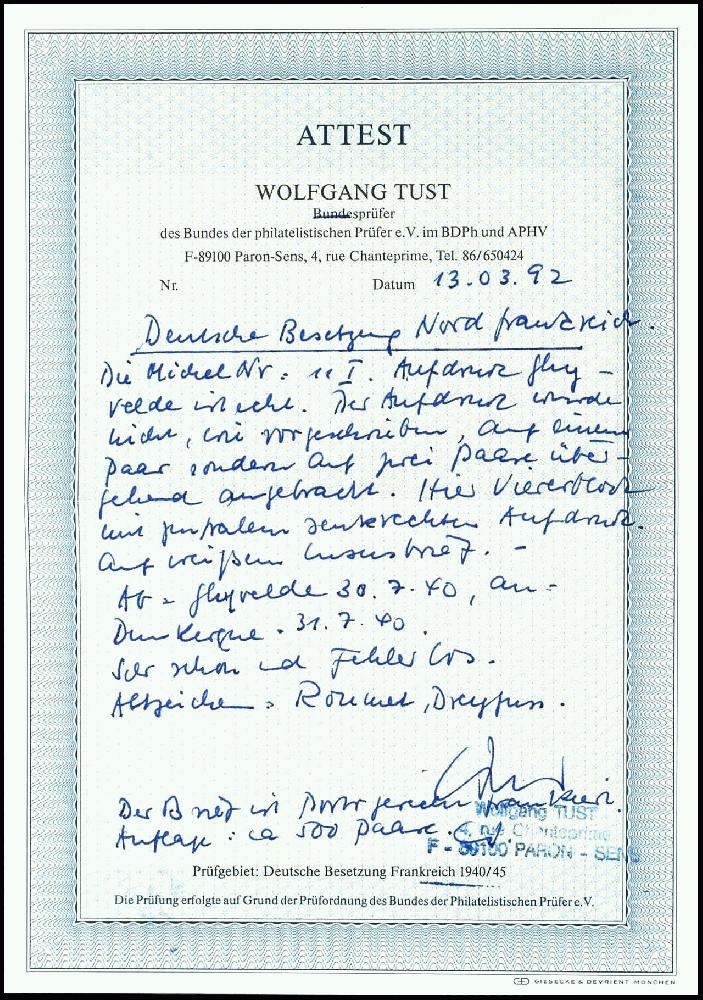 ATTEST
WOLFGANG TUST
Bundesprüfer
des Bundes der philatelistischen Prüfer e.V. im BDPh und APHV
F-89100 Paron-Sens, 4, rue Chanteprime, Tel. 86/650424
Nr. Datum 13.03.92
Deutsche Besetzung Nordfrankreich.
Die Michel Nr: 11 I. Aufdruck Ghy-
velde ist echt. Der Aufdruck wurde
nicht, wie vorgeschrieben, auf einem
Paar sondern auf zwei Paare über-
gehend angebracht. Hier Viererblock
mit zentralem senkrechten Aufdruck.
Auf weißem Luxusbrief. -
Ab = Ghyvelde 30.7.40, an =
Dunkerque . 31.7.40.
Sehr schön und Fehlerlos.
Altzeichen : Roumet, Dreyfuss.
Der Brief ist Portogerecht frankiert.
Auflage : ca 500 Paare.
Wolfgang TUST
4, rue Chanteprime
F - 89100 PARON - SENS
Prüfgebiet: Deutsche Besetzung Frankreich 1940/45
Die Prüfung erfolgte auf Grund der Prüfordnung des Bundes der Philatelistischen Prüfer e.V.
GD GIESECKE & DEVRIENT MÜNCHEN